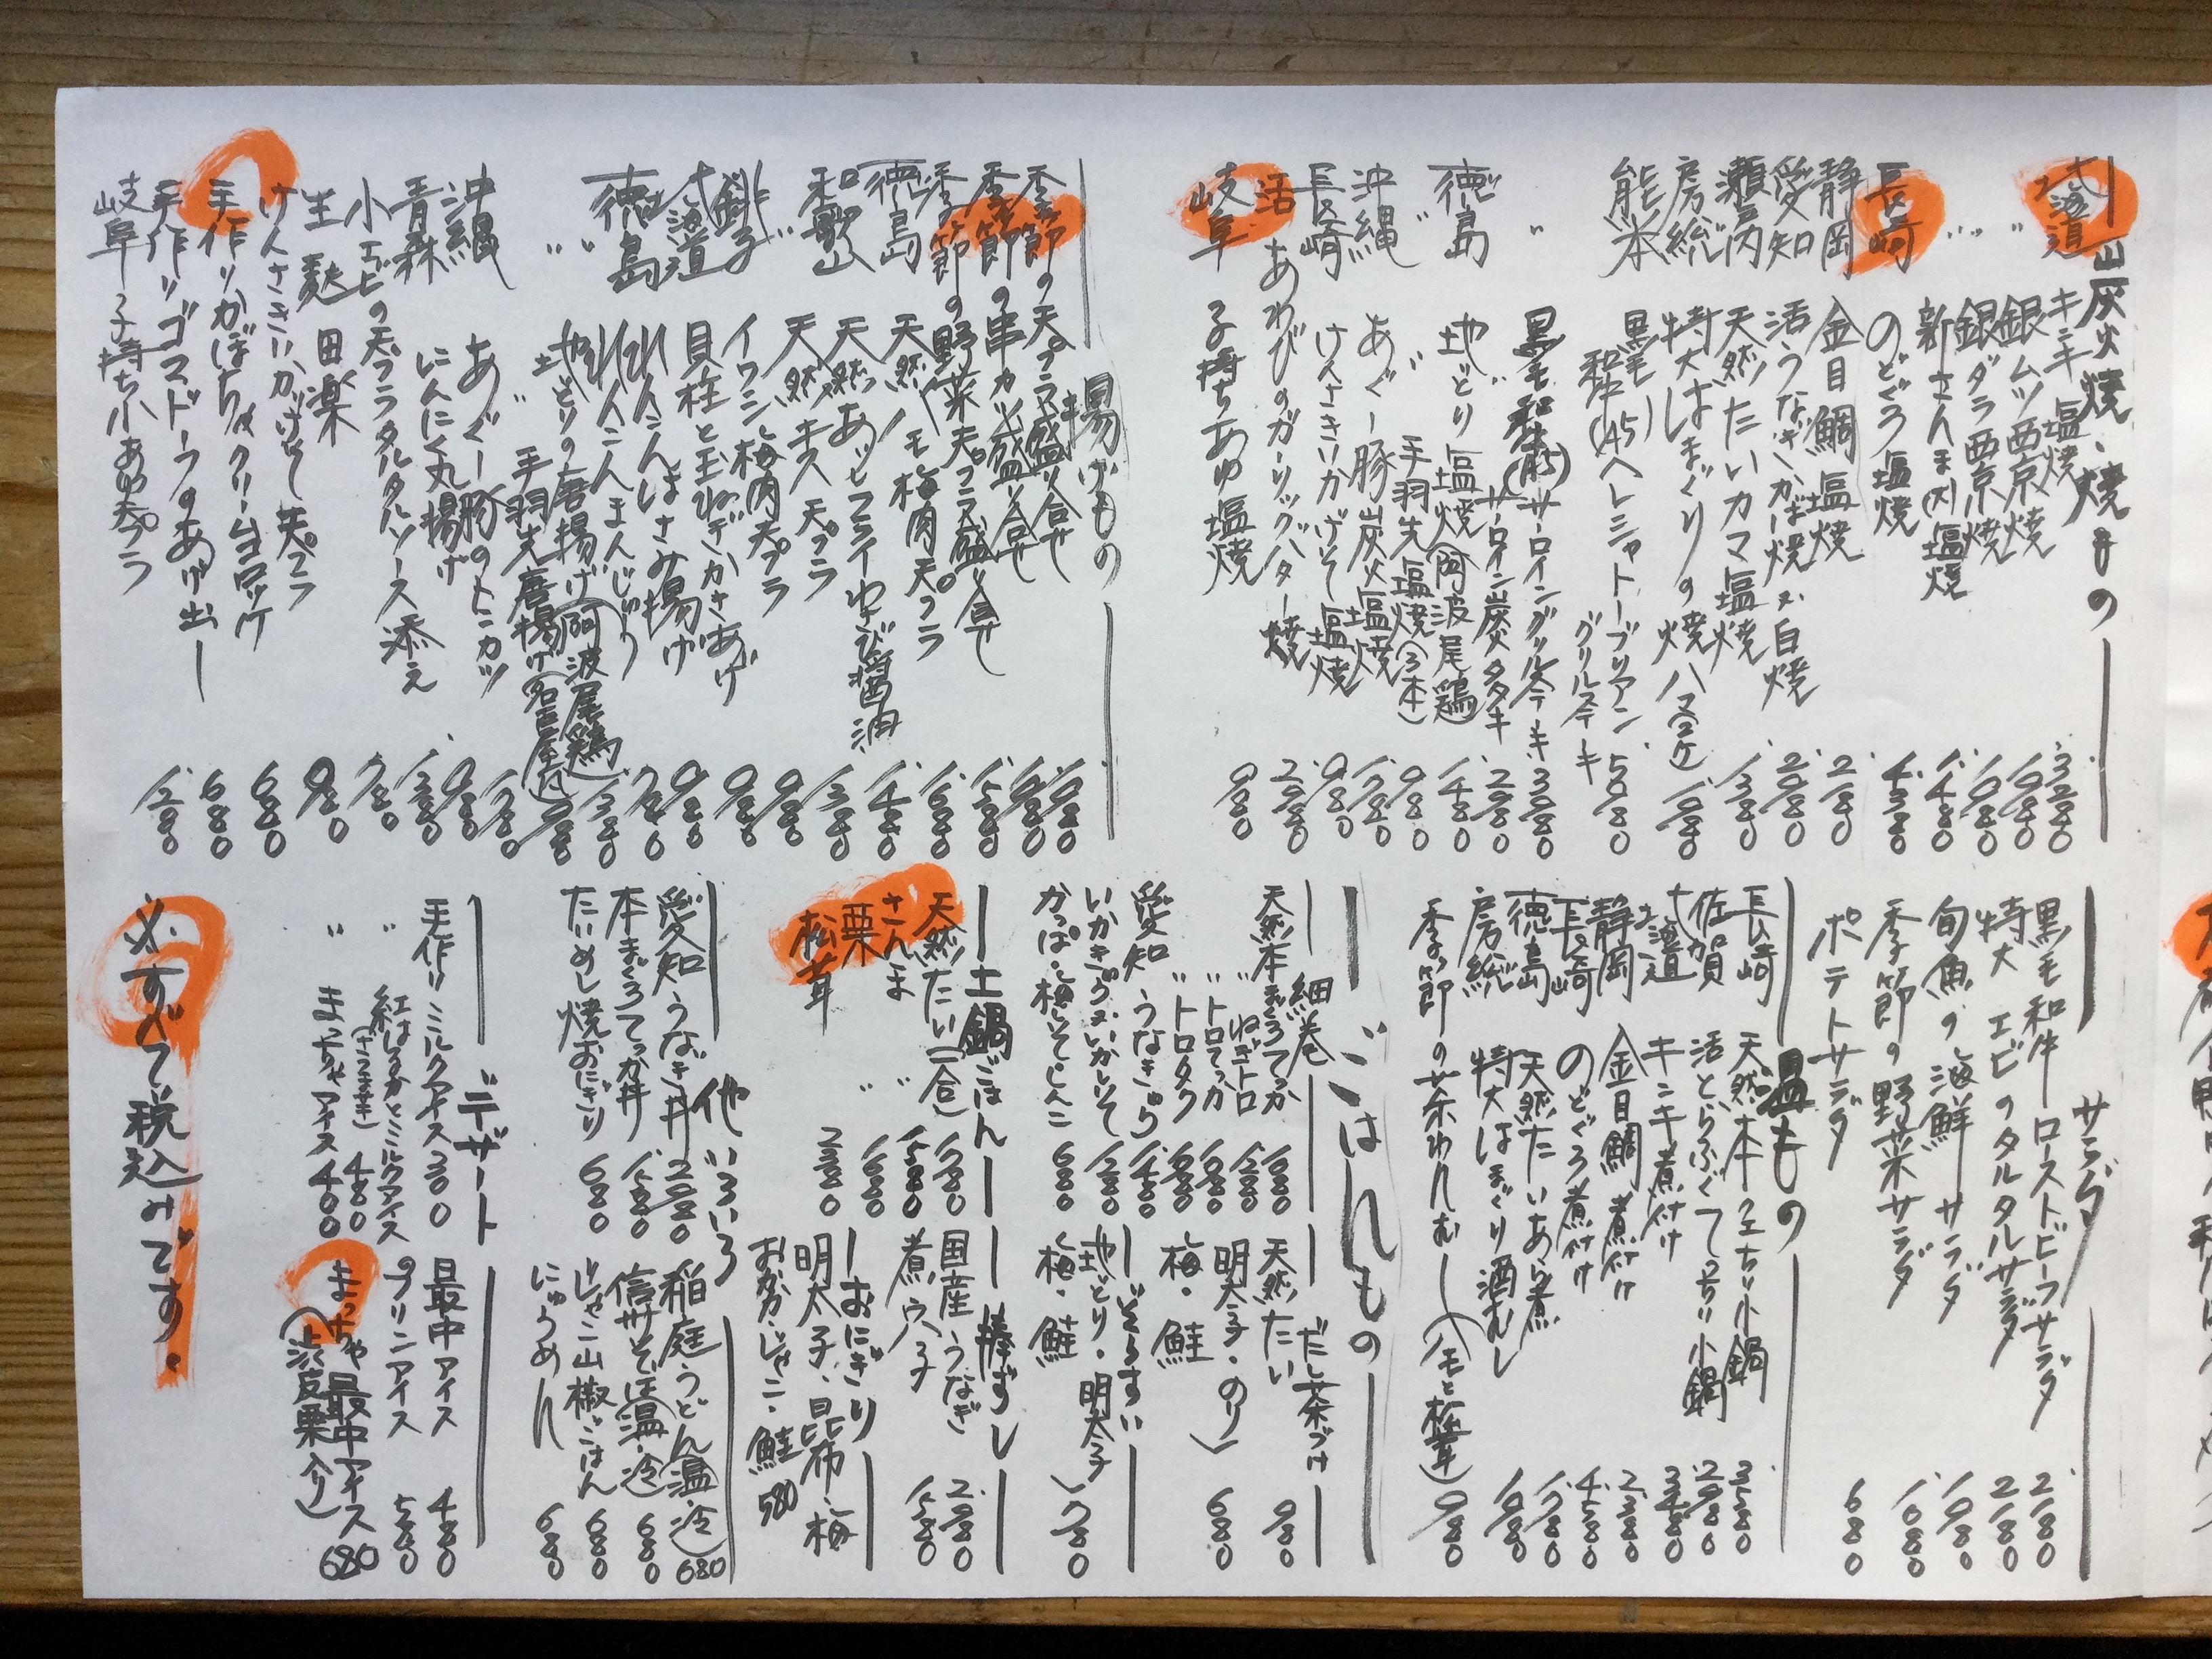 炭火焼、焼もの
北海道 キンキ塩焼 3280
〃 銀ムツ西京焼 1980
〃 銀ダラ西京焼 1980
〃 新さんま塩焼 1480
長崎 のどぐろ塩焼 4380
静岡 金目鯛塩焼 2180
愛知 活うなぎかば焼又白焼 2980
瀬戸内 天然たいカマ塩焼 1380
房総 特大はまぐりの焼ハマ 1080
能登 黒毛和牛(A5)ヘレシャトーブリアングリルステーキ 5080
〃 黒毛和牛(A5)サーロイングリルステーキ 3080
〃 サーロイン炭火タタキ 2180
徳島 地どり塩焼(阿波尾鶏) 1480
〃 手羽先塩焼(3本) 980
沖縄 あぐー豚炭火塩焼 1780
長崎 けんさきいかげそ塩焼 980
活 あわびのガーリックバター焼 2980
岐阜 子持ちあゆ塩焼 980
揚げもの
季節の天プラ盛り合せ 1980
季節の串カツ盛り合せ 1980
季節の野菜天プラ盛り合せ 1580
徳島 天然ハモ梅肉天プラ 1680
和歌山 天然あじフライわさび醤油 1480
〃 天然キス天プラ 1380
銚子 イワシ梅肉天プラ 980
北海道 貝柱と玉ねぎかきあげ 980
徳島 れんこんはさみ揚げ 980
れんこんまんじゅう 780
〃 地どりの唐揚げ(阿波尾鶏) 1380
〃 手羽先唐揚げ(名古屋風) 980
沖縄 あぐー豚のトンカツ 1780
青森 にんにく丸揚げ 980
小エビの天プラタルタルソース添え 1380
生麩田楽 780
けんさきいかげそ天プラ 980
手作りかぼちゃクリームコロッケ 680
手作りゴマドーフのあげ出し 680
岐阜 子持ち小あゆ天プラ 1280
サラダ
黒毛和牛ローストビーフサラダ 2180
特大エビのタルタルサラダ 2180
旬魚の海鮮サラダ 1980
季節の野菜サラダ 1080
ポテトサラダ 680
温もの
長崎 天然本クエちり小鍋 3580
佐賀 活とらふぐてっちり小鍋 2980
北海道 キンキ煮付け 3480
静岡 金目鯛煮付け 2380
長崎 のどぐろ煮付け 4580
徳島 天然たいあら煮 1780
房総 特大はまぐり酒むし 1080
季節の茶わんむし(ハモと松茸) 980
ごはんもの
細巻
天然本まぐろてっか 1680
〃 ねぎトロ 1280
〃 トロてっか 1980
〃 トロタク 1680
愛知 うなきゅう 1480
いかきゅう又いかしそ 1280
かっぱ・梅しそしんこ 680
だし茶づけ
天然たい 980
明太子・のり
梅・鮭 680
ぞうすい
地どり・明太子
梅・鮭 780
土鍋ごはん
天然たい(一合) 1780
さんま 〃 1580
栗 〃 1680
松茸 2380
棒ずし
国産うなぎ 2980
煮穴子 1580
おにぎり
明太子・昆布・梅
おかか・じゃこ・鮭 580
他いろいろ
愛知 うなぎ丼 2980
本まぐろてっか丼 1580
たいめし焼おにぎり 680
稲庭うどん(温・冷) 680
信州そば(温・冷) 680
じゃこ山椒ごはん 680
にゅうめん 680
デザート
手作りミルクアイス 300
〃 紅はるかとミルクアイス(さつまいも) 480
〃 まっちゃアイス 400
最中アイス 480
プリンアイス 580
まっちゃ最中アイス(渋皮栗入り) 680
※すべて税込みです。